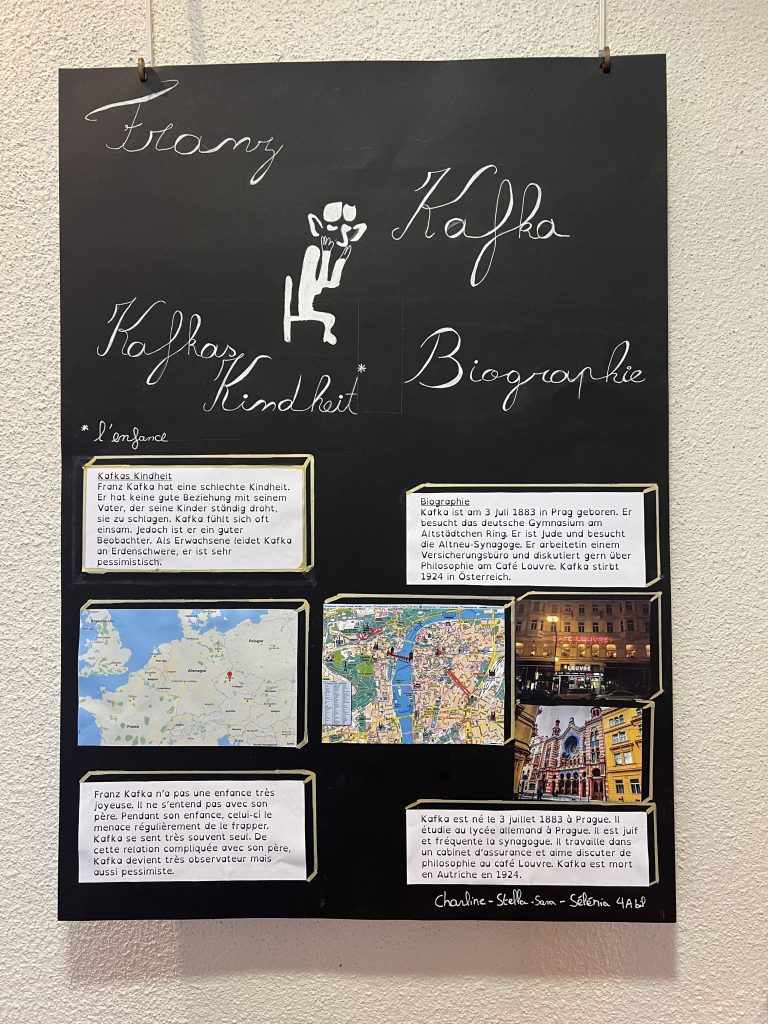 Franz
Kafka
Kafkas
Kindheit*
Biographie
* l'enfance
Kafkas Kindheit
Franz Kafka hat eine schlechte Kindheit.
Er hat keine gute Beziehung mit seinem
Vater, der seine Kinder ständig droht,
sie zu schlagen. Kafka fühlt sich oft
einsam. Jedoch ist er ein guter
Beobachter. Als Erwachsene leidet Kafka
an Erdenschwere, er ist sehr
pessimistisch.
Biographie
Kafka ist am 3 Juli 1883 in Prag geboren. Er
besucht das deutsche Gymnasium am
Altstädtchen Ring. Er ist Jude und besucht
die Altneu-Synagoge. Er arbeitetin einem
Versicherungsbüro und diskutiert gern über
Philosophie am Café Louvre. Kafka stirbt
1924 in Österreich.
Pologne
Allemagne
France
CAFÉ LOUVRE
LOUVRE
Franz Kafka n'a pas une enfance très
joyeuse. Il ne s'entend pas avec son
père. Pendant son enfance, celui-ci le
menace régulièrement de le frapper.
Kafka se sent très souvent seul. De
cette relation compliquée avec son père,
Kafka devient très observateur mais
aussi pessimiste.
Kafka est né le 3 juillet 1883 à Prague. Il
étudie au lycée allemand à Prague. Il est juif
et fréquente la synagogue. Il travaille dans
un cabinet d'assurance et aime discuter de
philosophie au café Louvre. Kafka est mort
en Autriche en 1924.
Charline - Stella - Sara - Sélénia